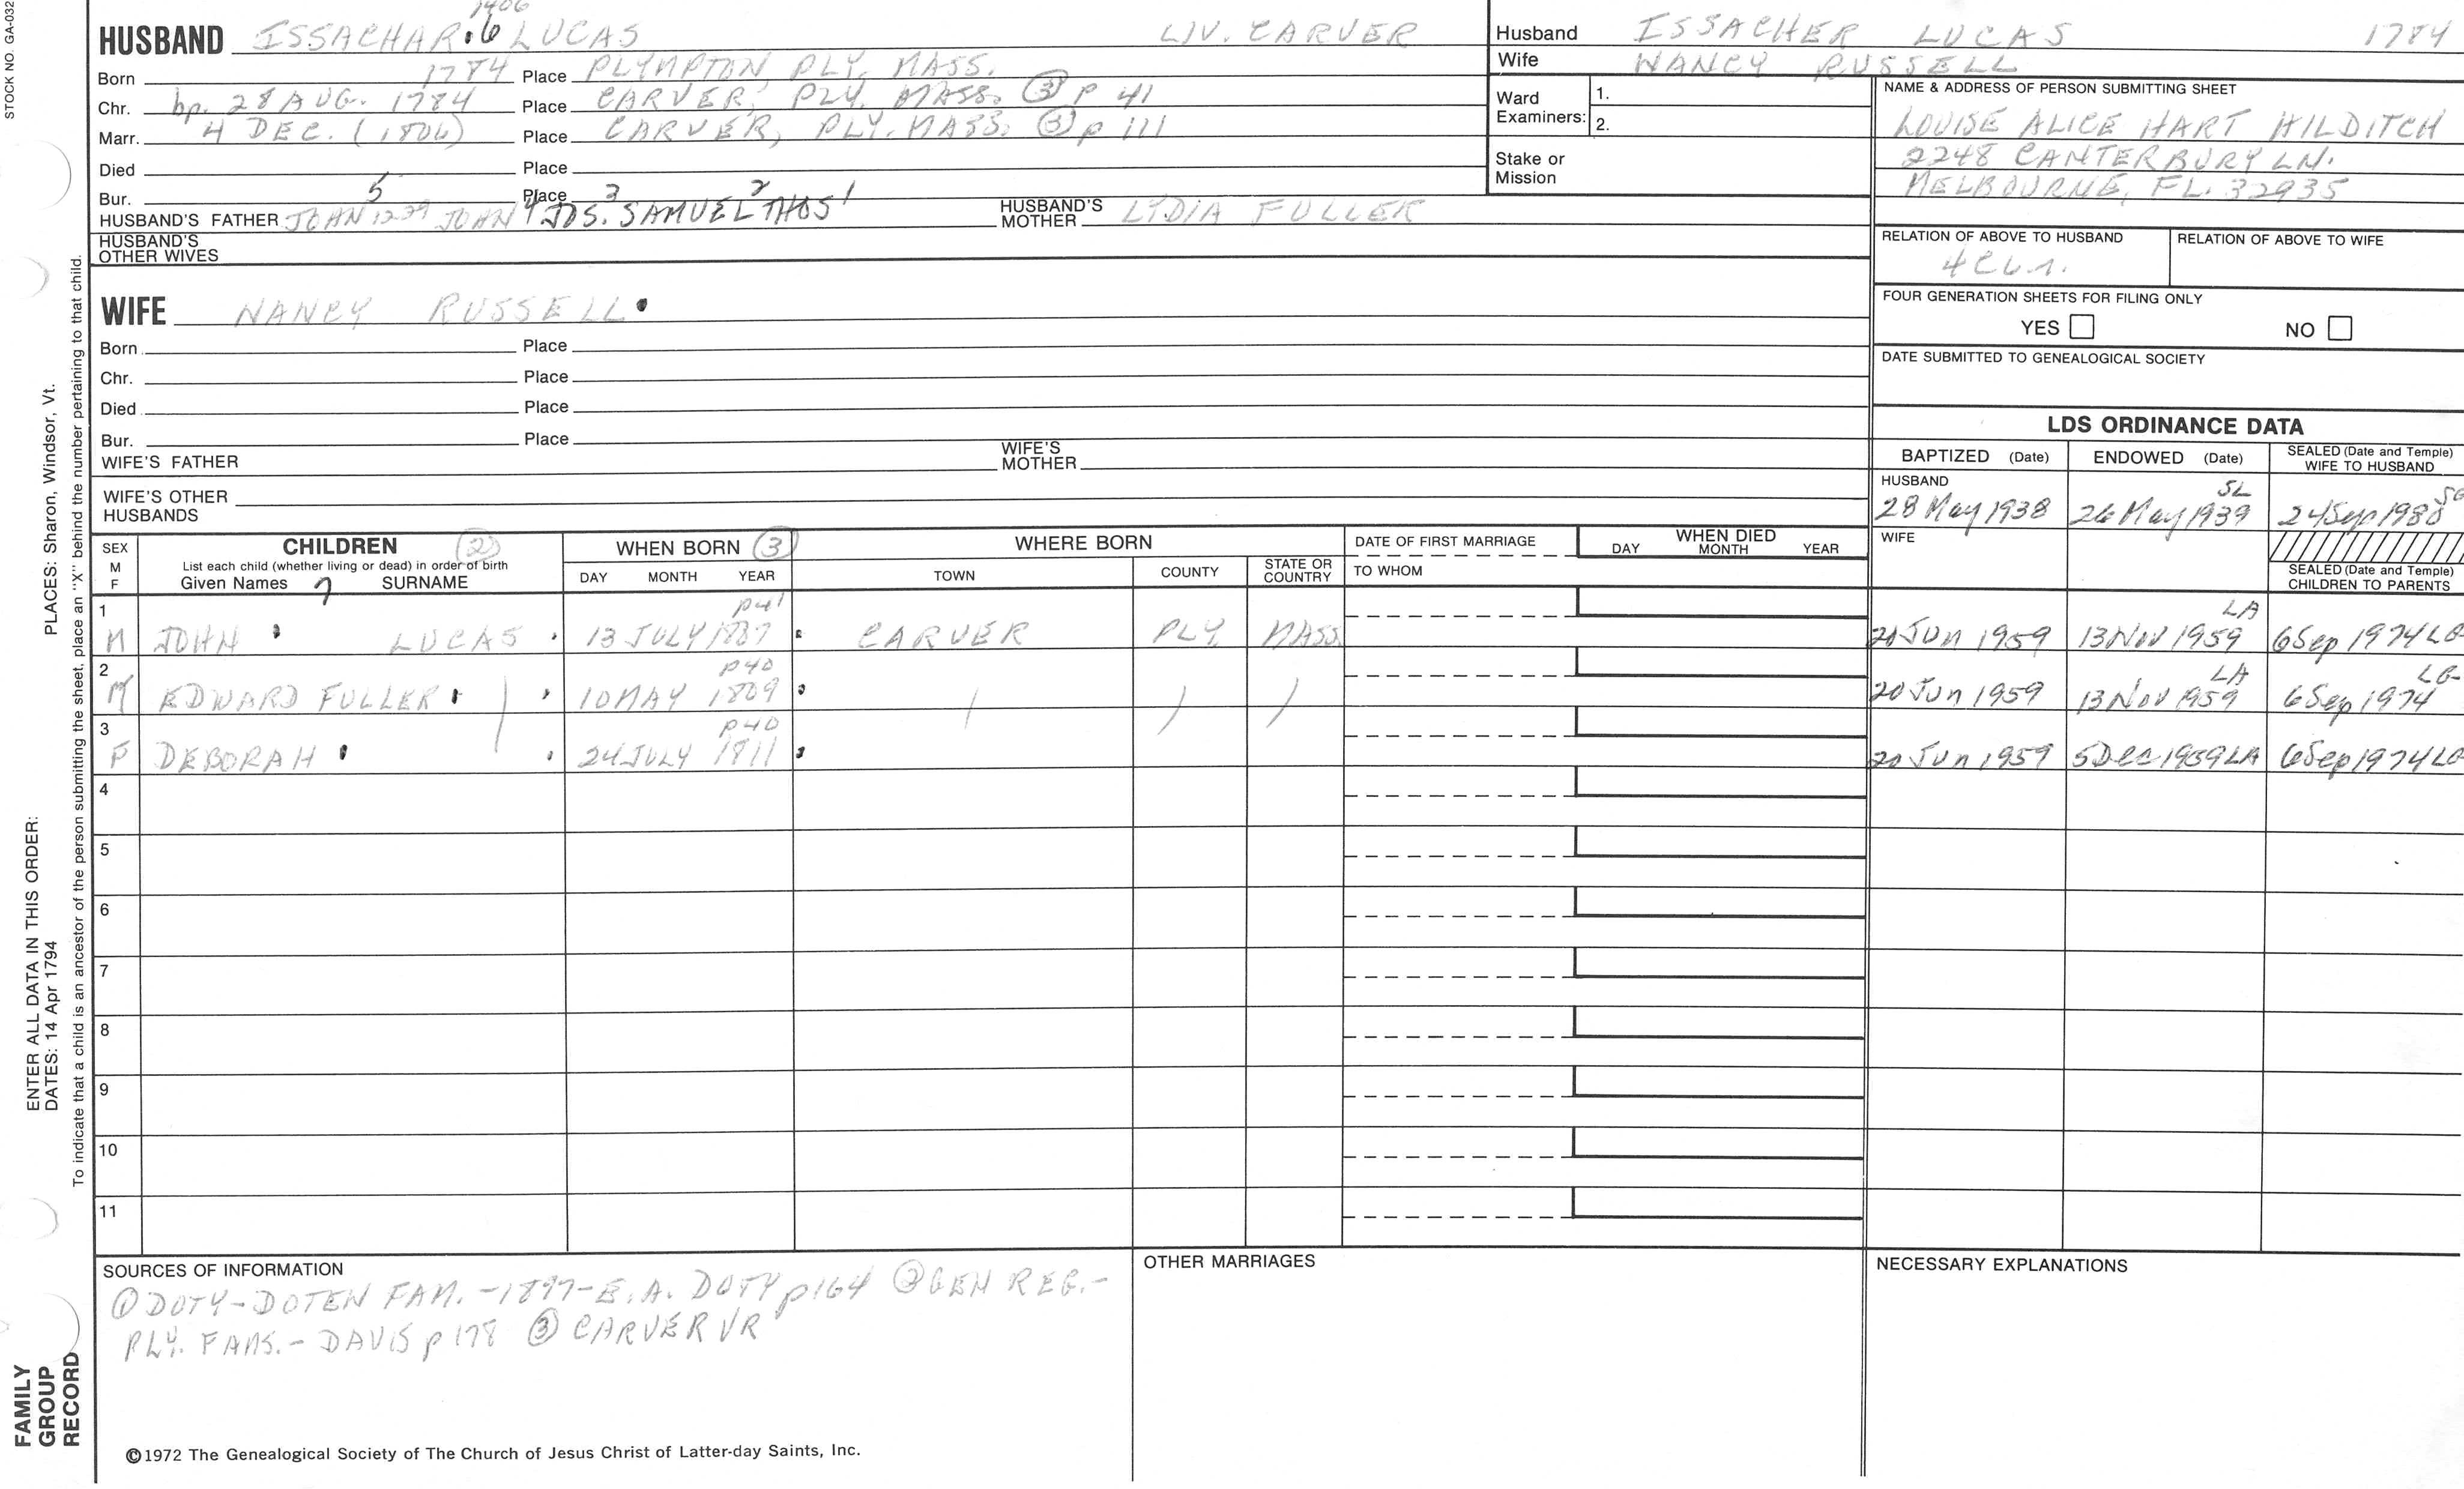 STOCK NO. GA-032
1406
HUSBAND ISSACHAR 6 LUCAS LIV. CARVER
Born 1784 Place PLYMPTON PLY. MASS.
Chr. bp. 28 AUG. 1784 Place CARVER, PLY. MASS. ③ p 41
Marr. 4 DEC. (1806) Place CARVER, PLY. MASS. ③ p 111
Died Place
Bur. Place
HUSBAND'S FATHER JOHN 1239 JOHN 5 4 JOS. 3 SAMUEL 2 THOS 1 HUSBAND'S MOTHER LYDIA FULLER
HUSBAND'S OTHER WIVES
Husband ISSACHER LUCAS 1784
Wife NANCY RUSSELL
Ward Examiners: 1.
2.
Stake or Mission
NAME & ADDRESS OF PERSON SUBMITTING SHEET
LOUISE ALICE HART HILDITCH
2248 CANTERBURY LN.
MELBOURNE, FL. 32935
RELATION OF ABOVE TO HUSBAND RELATION OF ABOVE TO WIFE
FOUR GENERATION SHEETS FOR FILING ONLY
YES NO
DATE SUBMITTED TO GENEALOGICAL SOCIETY
WIFE NANCY RUSSELL
Born Place
Chr. Place
Died Place
Bur. Place
WIFE'S FATHER WIFE'S MOTHER
WIFE'S OTHER HUSBANDS
LDS ORDINANCE DATA
BAPTIZED (Date) ENDOWED (Date) SEALED (Date and Temple) WIFE TO HUSBAND
HUSBAND
28 May 1938 26 May 1939 SL 24 Sep 1980 SG
WIFE
SEALED (Date and Temple) CHILDREN TO PARENTS
SEX M F CHILDREN ② List each child (whether living or dead) in order of birth Given Names 7 SURNAME
WHEN BORN ③ DAY MONTH YEAR
WHERE BORN TOWN COUNTY STATE OR COUNTRY
DATE OF FIRST MARRIAGE TO WHOM
WHEN DIED DAY MONTH YEAR
1 M JOHN LUCAS p41 13 JULY 1807 CARVER PLY. MASS. 20 Jun 1959 13 Nov 1959 LA 6 Sep 1974 LG
2 M EDWARD FULLER p40 10 MAY 1809 20 Jun 1959 13 Nov 1959 LA 6 Sep 1974 LG
3 F DEBORAH p40 24 JULY 1811 20 Jun 1959 5 Dec 1959 LA 6 Sep 1974 LG
4
5
6
7
8
9
10
11
SOURCES OF INFORMATION
① DOTY-DOTEN FAM. -1897-E.A. DOTY p164 ② GEN REG.-
PLY. FAMS.- DAVIS p 178 ③ CARVER VR
OTHER MARRIAGES
NECESSARY EXPLANATIONS
©1972 The Genealogical Society of The Church of Jesus Christ of Latter-day Saints, Inc.
FAMILY
GROUP
RECORD
ENTER ALL DATA IN THIS ORDER:
DATES: 14 Apr 1794
PLACES: Sharon, Windsor, Vt.
To indicate that a child is an ancestor of the person submitting the sheet, place an "X" behind the number pertaining to that child.